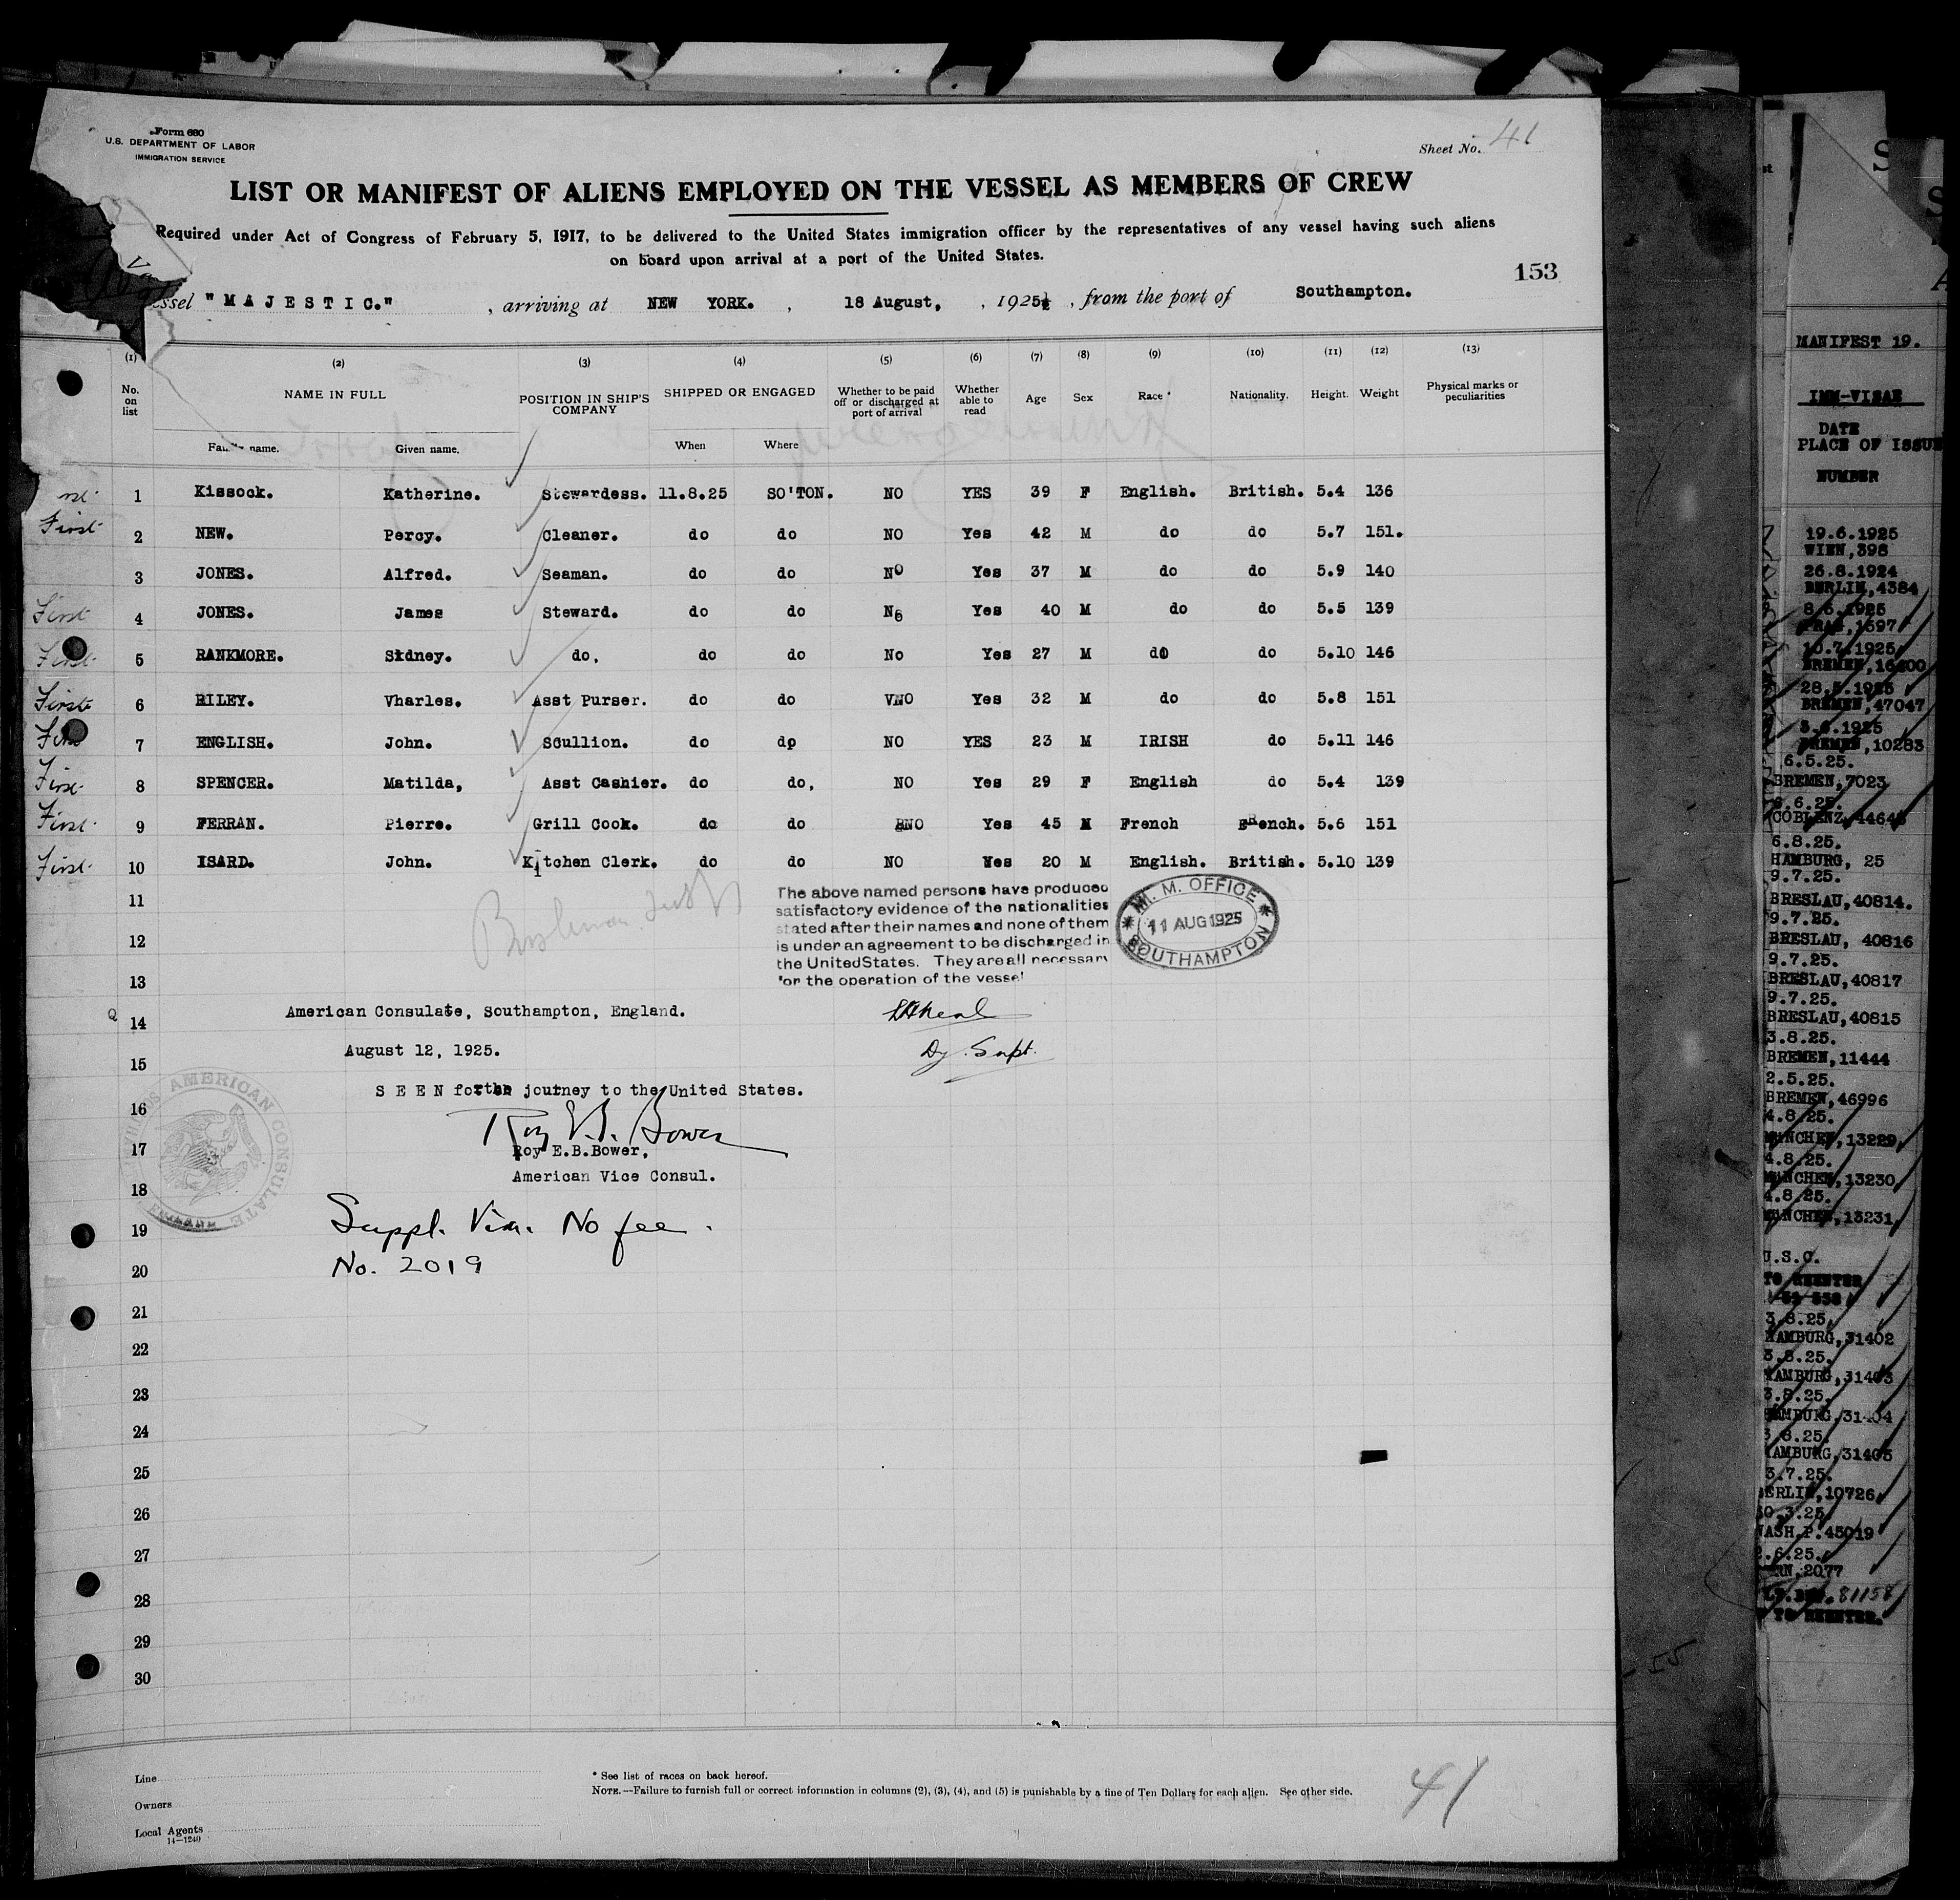 Form 680
U.S. DEPARTMENT OF LABOR
IMMIGRATION SERVICE
Sheet No. 41
LIST OR MANIFEST OF ALIENS EMPLOYED ON THE VESSEL AS MEMBERS OF CREW
Required under Act of Congress of February 5, 1917, to be delivered to the United States immigration officer by the representatives of any vessel having such aliens
on board upon arrival at a port of the United States.
153
essel "MAJESTIC." , arriving at NEW YORK. , 18 August, , 1925 , from the port of Southampton.
(1) (2) (3) (4) (5) (6) (7) (8) (9) (10) (11) (12) (13)
No. on list NAME IN FULL POSITION IN SHIP'S COMPANY SHIPPED OR ENGAGED Whether to be paid off or discharged at port of arrival Whether able to read Age Sex Race * Nationality. Height. Weight Physical marks or peculiarities
Family name. Given name. When Where
1 Kissock. Katherine. Stewardess. 11.8.25 SO'TON. NO YES 39 F English. British. 5.4 136
First 2 NEW. Percy. Cleaner. do do NO Yes 42 M do do 5.7 151.
3 JONES. Alfred. Seaman. do do NO Yes 37 M do do 5.9 140
First 4 JONES. James Steward. do do No Yes 40 M do do 5.5 139
First 5 RANKMORE. Sidney. do, do do No Yes 27 M do do 5.10 146
First 6 RILEY. Vharles. Asst Purser. do do VNO Yes 32 M do do 5.8 151
First 7 ENGLISH. John. Scullion. do dp NO YES 23 M IRISH do 5.11 146
First 8 SPENCER. Matilda, Asst Cashier. do do, NO Yes 29 F English do 5.4 139
First 9 FERRAN. Pierre. Grill Cook. do do NO Yes 45 M French FRench. 5.6 151
First 10 ISARD. John. Kitchen Clerk. do do NO Yes 20 M English. British. 5.10 139
11
12
13
The above named persons have produced
satisfactory evidence of the nationalities
stated after their names and none of them
is under an agreement to be discharged in
the United States. They are all necessary
for the operation of the vessel
M. M. OFFICE
11 AUG 1925
SOUTHAMPTON
14 American Consulate, Southampton, England.
Dy. Supt.
15 August 12, 1925.
16 SEEN for the journey to the United States.
AMERICAN CONSULATE
Roy E.B. Bower
17 Roy E.B.Bower,
American Vice Consul.
18
19 Suppl. Visa. No fee.
20 No. 2019
21
22
23
24
25
26
27
28
29
30
Line
Owners
Local Agents
14-1240
* See list of races on back hereof.
NOTE.—Failure to furnish full or correct information in columns (2), (3), (4), and (5) is punishable by a fine of Ten Dollars for each alien. See other side.
41
MANIFEST 19.
IMM-VISAE
DATE
PLACE OF ISSUE
NUMBER
19.6.1925
WIEN,398
26.8.1924
BERLIN,4384
8.6.1925
PRAG,1597
10.7.1925
BREMEN,16400
28.5.1925
BREMEN,47047
BREMEN,10283
6.5.25.
BREMEN,7023
COBLENZ,
6.8.25.
HAMBURG, 25
9.7.25.
BRESLAU,40814.
9.7.25.
BRESLAU, 40816
9.7.25.
BRESLAU,40817
9.7.25.
BRESLAU,40815
3.8.25.
BREMEN,11444
2.5.25.
BREMEN,46996
4.8.25.
MÜNCHEN,13229
4.8.25.
MÜNCHEN,13230
4.8.25.
MÜNCHEN,13231
U.S.C.
TO REENTER
3.8.25.
HAMBURG,31402
3.8.25.
HAMBURG,31403
3.8.25.
HAMBURG,31404
3.8.25.
HAMBURG,31405
3.7.25.
BERLIN,10726
WASH.P.45019
2077
81158
TO REENTER.